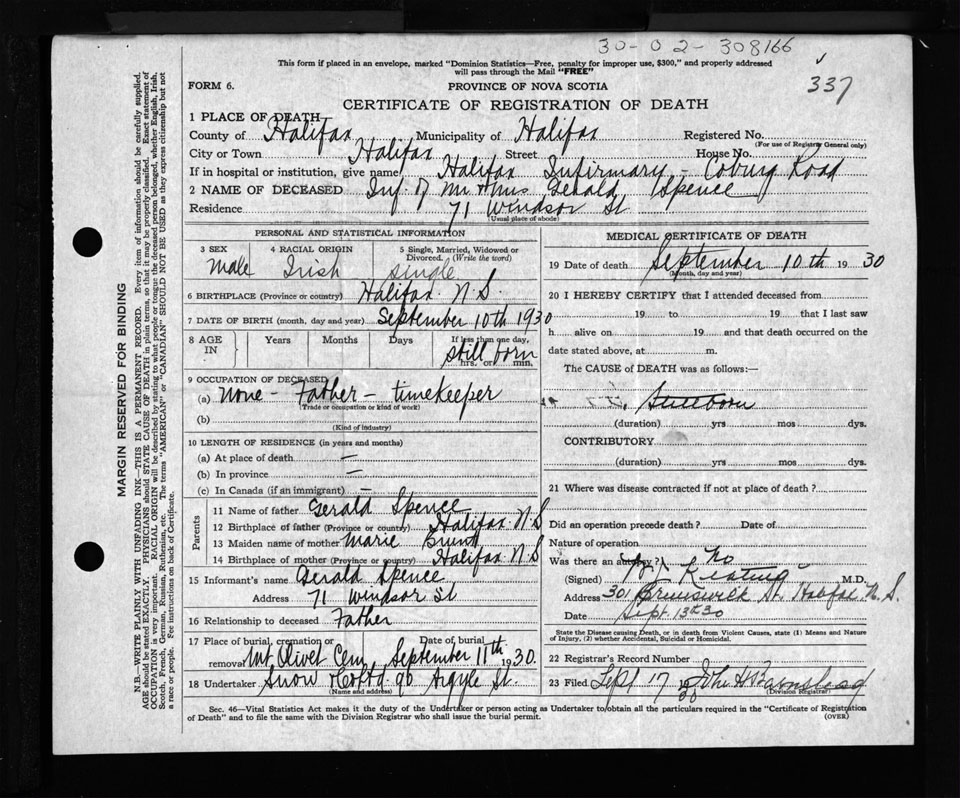 30-02-308166
This form if placed in an envelope, marked "Dominion Statistics—Free, penalty for improper use, $300," and properly addressed
will pass through the Mail "FREE"
337
FORM 6.
PROVINCE OF NOVA SCOTIA
CERTIFICATE OF REGISTRATION OF DEATH
1 PLACE OF DEATH
County of Halifax Municipality of Halifax Registered No.
(For use of Registrar General only)
City or Town Halifax Street House No.
If in hospital or institution, give name Halifax Infirmary - Coburg Road
2 NAME OF DECEASED Inf of Mr & Mrs Gerald Spence
Residence 71 Windsor St
(Usual place of abode)
PERSONAL AND STATISTICAL INFORMATION
3 SEX 4 RACIAL ORIGIN 5 Single, Married, Widowed or
Divorced. (Write the word)
Male Irish single
6 BIRTHPLACE (Province or country) Halifax N.S.
7 DATE OF BIRTH (month, day and year) September 10th 1930
8 AGE IN Years Months Days If less than one day,
still born
hrs. or min.
9 OCCUPATION OF DECEASED
(a) None - Father - timekeeper
(Trade or occupation or kind of work)
(b)
(Kind of industry)
10 LENGTH OF RESIDENCE (in years and months)
(a) At place of death —
(b) In province —
(c) In Canada (if an immigrant) —
Parents
11 Name of father Gerald Spence
12 Birthplace of father (Province or country) Halifax N.S
13 Maiden name of mother Marie
14 Birthplace of mother (Province or country) Halifax N.S
15 Informant's name Gerald Spence
Address 71 Windsor St
16 Relationship to deceased Father
17 Place of burial, cremation or removal Mt Olivet Cem Date of burial September 11th 1930.
18 Undertaker Snow & Co Ltd 90 Argyle St.
(Name and address)
MEDICAL CERTIFICATE OF DEATH
19 Date of death September 10th 1930
(Month, day and year)
20 I HEREBY CERTIFY that I attended deceased from
19 to 19 that I last saw
h alive on 19 and that death occurred on the
date stated above, at m.
The CAUSE of DEATH was as follows:—
Stillborn
(duration) yrs mos dys.
CONTRIBUTORY
(duration) yrs mos dys.
21 Where was disease contracted if not at place of death?
Did an operation precede death? Date of
Nature of operation
Was there an autopsy? No
(Signed) Keating M.D.
Address 301 Brunswick St. Halifax N.S.
Date Sept 13th 30
State the Disease causing Death, or in death from Violent Causes, state (1) Means and Nature
of Injury, (2) whether Accidental, Suicidal or Homicidal.
22 Registrar's Record Number
23 Filed Sept 17 1930 John H Barnstead
(Division Registrar)
Sec. 46—Vital Statistics Act makes it the duty of the Undertaker or person acting as Undertaker to obtain all the particulars required in the "Certificate of Registration
of Death" and to file the same with the Division Registrar who shall issue the burial permit.
(OVER)
MARGIN RESERVED FOR BINDING
N.B.—WRITE PLAINLY WITH UNFADING INK—THIS IS A PERMANENT RECORD. Every item of information should be carefully supplied.
AGE should be stated EXACTLY. PHYSICIANS should STATE CAUSE OF DEATH in plain terms, so that it may be properly classified. Exact statement of
OCCUPATION is very important. RACIAL ORIGIN will be described by stating to what people or tongue the deceased person belonged, whether English, Irish,
Scotch, French, German, Russian, Ruthenian, etc. The terms "AMERICAN" or "CANADIAN" SHOULD NOT BE USED as they express citizenship but not
a race or people. Fee instructions on back of Certificate.